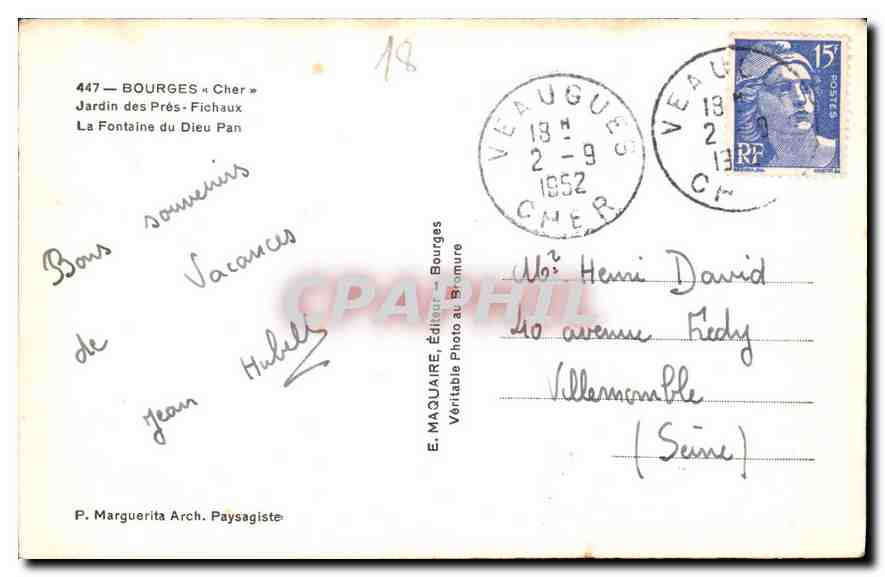 18
447 — BOURGES « Cher »
Jardin des Prés-Fichaux
La Fontaine du Dieu Pan
Bons souvenirs
de Vacances
Jean
P. Marguerita Arch. Paysagiste
E. MAQUAIRE, Éditeur — Bourges
Véritable Photo au Bromure
CPAPHIL
VEAUGUES
18 H
2 - 9
1952
CHER
VEAU
18 H
2 9
15F
POSTES
RF
Mr Henri David
40 avenue Fredy
Villemomble
(Seine)